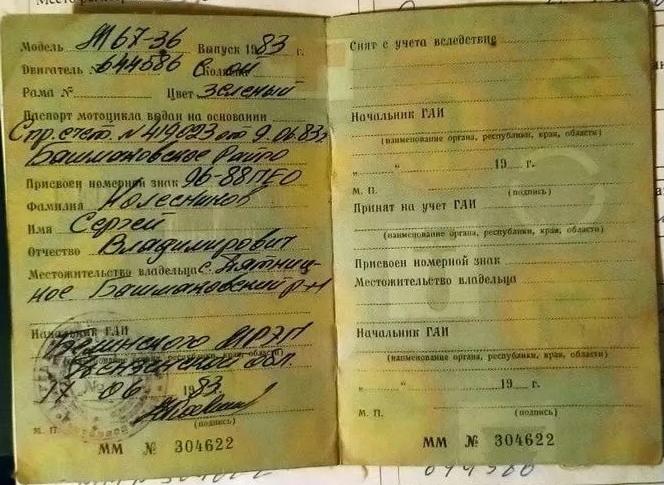 Модель М67-36 Выпуск 1983 г.
Двигатель № 644586 С кол
Рама № Цвет зеленый
Паспорт мотоцикла выдан на основании
Спр. счет. № 419023 от 9.06.83г
Башмаковское райпо
Присвоен номерной знак 96-88 ПЕО
Фамилия Колесников
Имя Сергей
Отчество Владимирович
Местожительство владельца с. Пятниц-
кое Башмаковский р-н
Начальник ГАИ
Белинского МРЭП
Пензенской обл.
17 06 1983
(подпись)
М. П.
ММ № 304622
Снят с учета вследствие
Начальник ГАИ
(наименование органа, республики, края, области)
„ “ 19 г.
М. П. (подпись)
Принят на учет ГАИ
(наименование органа, республики, края, области)
Присвоен номерной знак
Местожительство владельца
Начальник ГАИ
(наименование органа, республики, края, области)
„ “ 19 г.
М. П. (подпись)
ММ № 304622